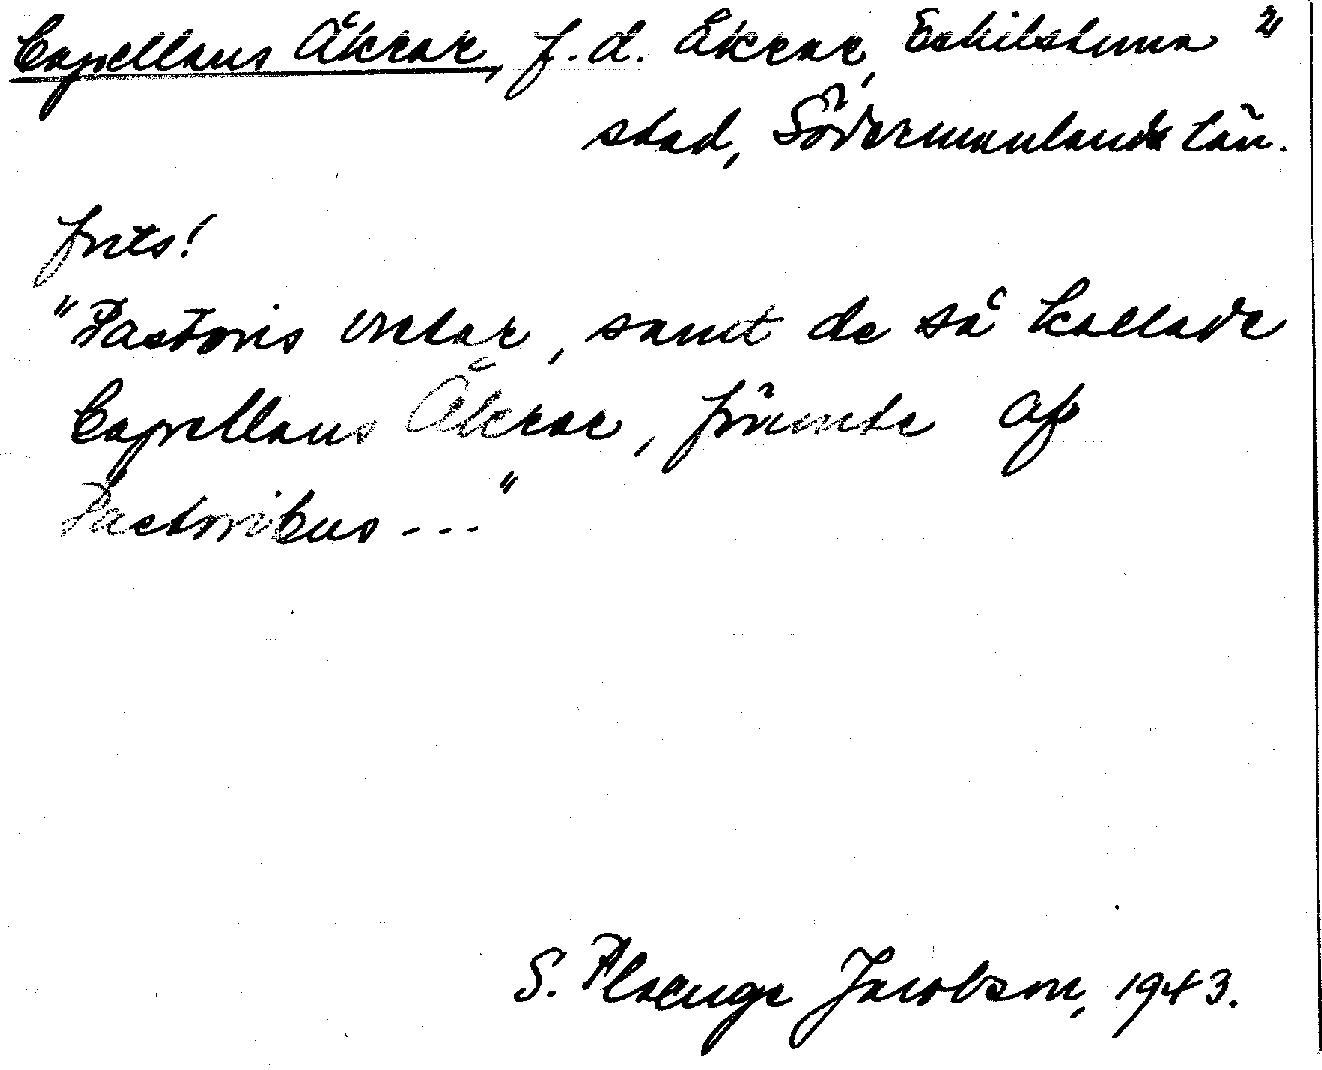 Capellans Åkrar, f.d. åkrar, Eskilstuna 2/
stad, Södermanlands län.
forts!
"Pastoris vretar, samt de så kallade
Capellans Åkrar, förunte af
Pastoribus ---"
S. Plænge Jacobson, 1943.